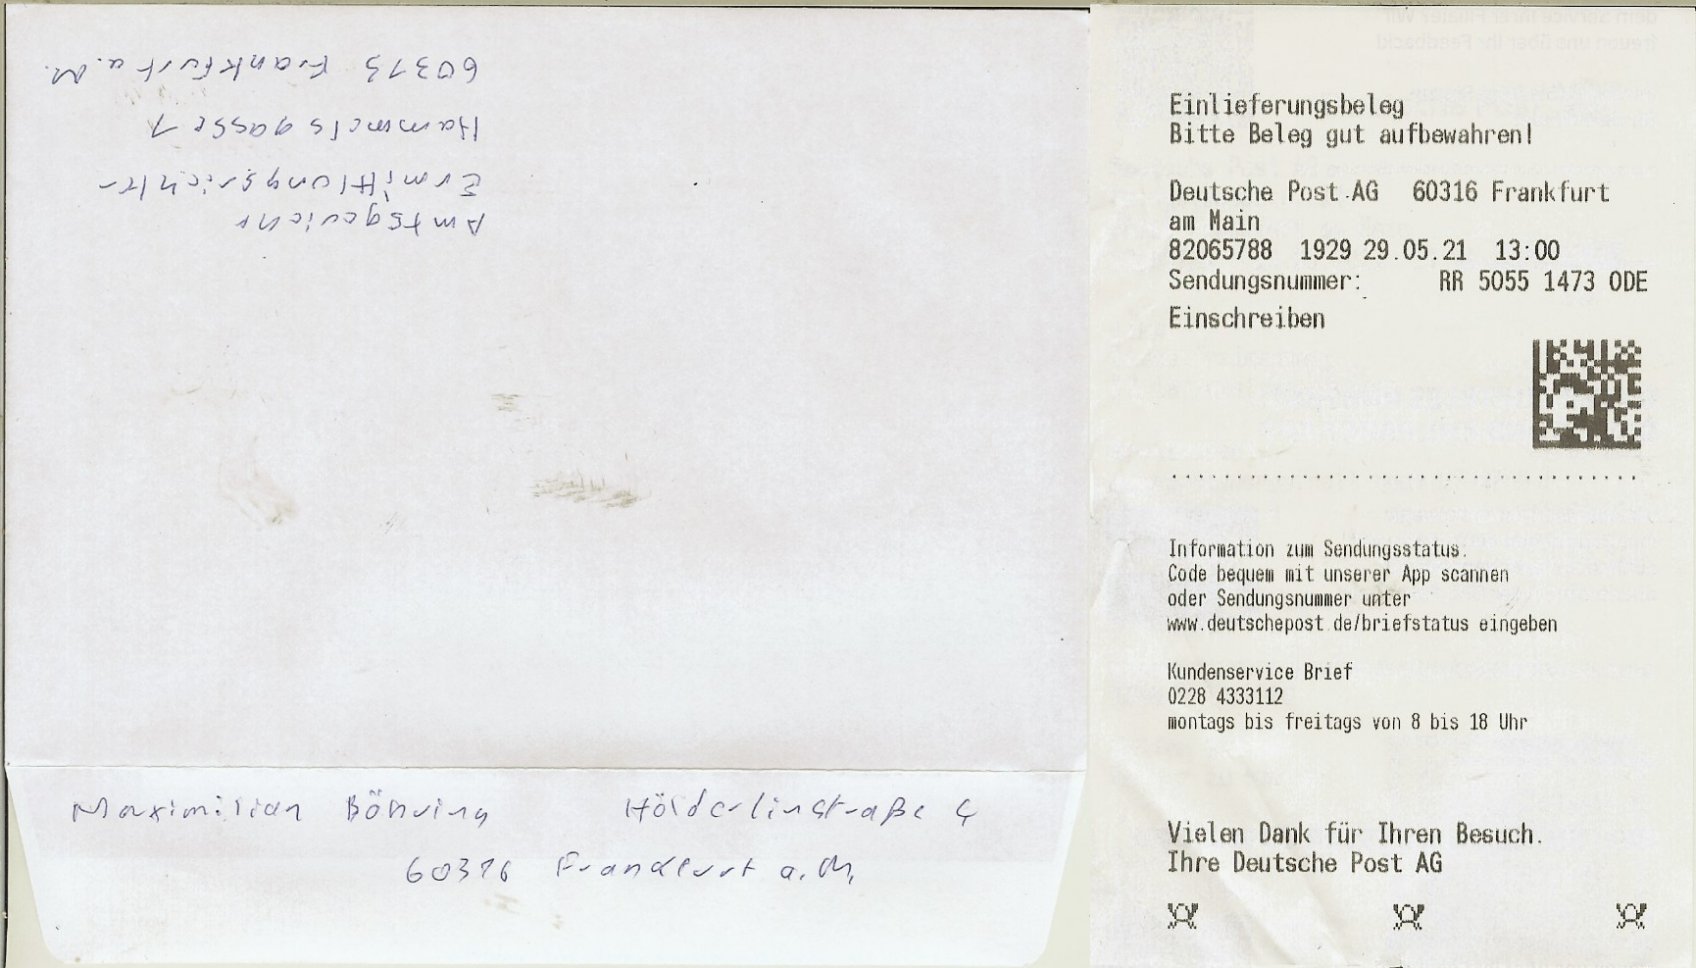 Amtsgericht
Ermittlungsrichter
Hammelsgasse 1
60313 Frankfurt a. M.
Maximilian Böhring Hölderlinstraße 4
60316 Frankfurt a. M.
Einlieferungsbeleg
Bitte Beleg gut aufbewahren!
Deutsche Post AG 60316 Frankfurt
am Main
82065788 1929 29.05.21 13:00
Sendungsnummer: RR 5055 1473 0DE
Einschreiben
Information zum Sendungsstatus.
Code bequem mit unserer App scannen
oder Sendungsnummer unter
www.deutschepost.de/briefstatus eingeben
Kundenservice Brief
0228 4333112
montags bis freitags von 8 bis 18 Uhr
Vielen Dank für Ihren Besuch.
Ihre Deutsche Post AG